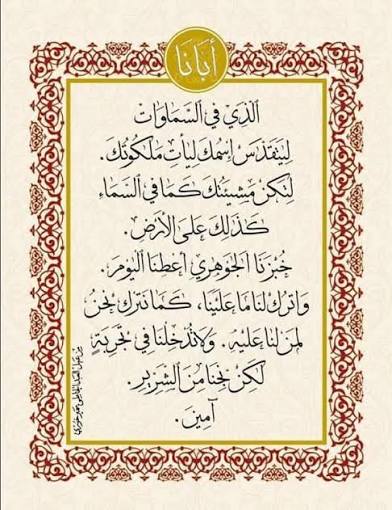 أَبَانَا
الَّذِي فِي السَّمَاوَاتْ
لِيَتَقَدَّسِ اِسْمُكَ لِيَأْتِ مَلَكُوتُكَ.
لِتَكُنْ مَشِيئَتُكَ كَمَا فِي السَّمَاءِ
كَذَلِكَ عَلَى الأَرْضِ.
خُبْزَنَا الجَوْهَرِي أَعْطِنَا اليَوْمَ.
وَاتْرُكْ لَنَا مَا عَلَيْنَا، كَمَا نَتْرُكُ نَحْنُ
لِمَنْ لَنَا عَلَيْهِ. وَلَا تُدْخِلْنَا فِي تَجْرِبَةٍ
لَكِنْ نَجِّنَا مِنَ الشِّرِّيرِ.
آمِينَ.